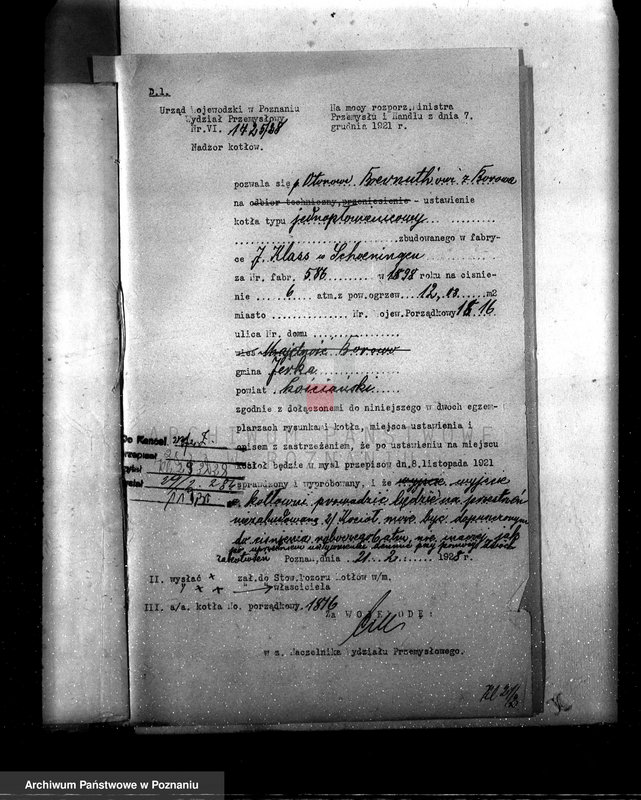 D.1.
Urząd Wojewódzki w Poznaniu
Wydział Przemysłowy
Nr.VI. 1425/28
Nadzór kotłów.
Na mocy rozporz.Ministra
Przemysłu i Handlu z dnia 7.
grudnia 1921 r.
pozwala się p. Ottonowi z Borowa
na odbiór techniczny,przeniesienie - ustawienie
kotła typu jednopłomienicowy
zbudowanego w fabry-
ce J. Klass w Schoeningen
za Nr. fabr. 586 w 1898 roku na ciśnie-
nie 6 atm.z pow.ogrzew. 12,03 m2
miasto Nr. Wojew.Porządkowy 1816
ulica Nr. domu
wieś Majętność Borowo
gmina Jerka
powiat kościański
zgodnie z dołączonemi do niniejszego w dwóch egzem-
plarzach rysunkami kotła, miejsca ustawienia i
opisem z zastrzeżeniem, że po ustawieniu na miejscu
kocioł będzie w myśl przepisów dn.8.listopada 1921
sprawdzony i wypróbowany, i że wyjście
z kotłowni prowadzić będzie na przestrzeń
niezabudowaną 2) Kocioł może być dopuszczonym
do ciśnienia roboczego 6 atm. nie inaczej jak
Poznań,dnia 21. 2. 1928 r.
Do Kancel.
II. wysłać + zał.do Stow.Dozoru Kotłów w/m.
" + + właściciela
III. a/a. kotła No. porządkowy. 1816
Za WOJEWODĘ:
w z. Naczelnika Wydziału Przemysłowego.
Archiwum Państwowe w Poznaniu